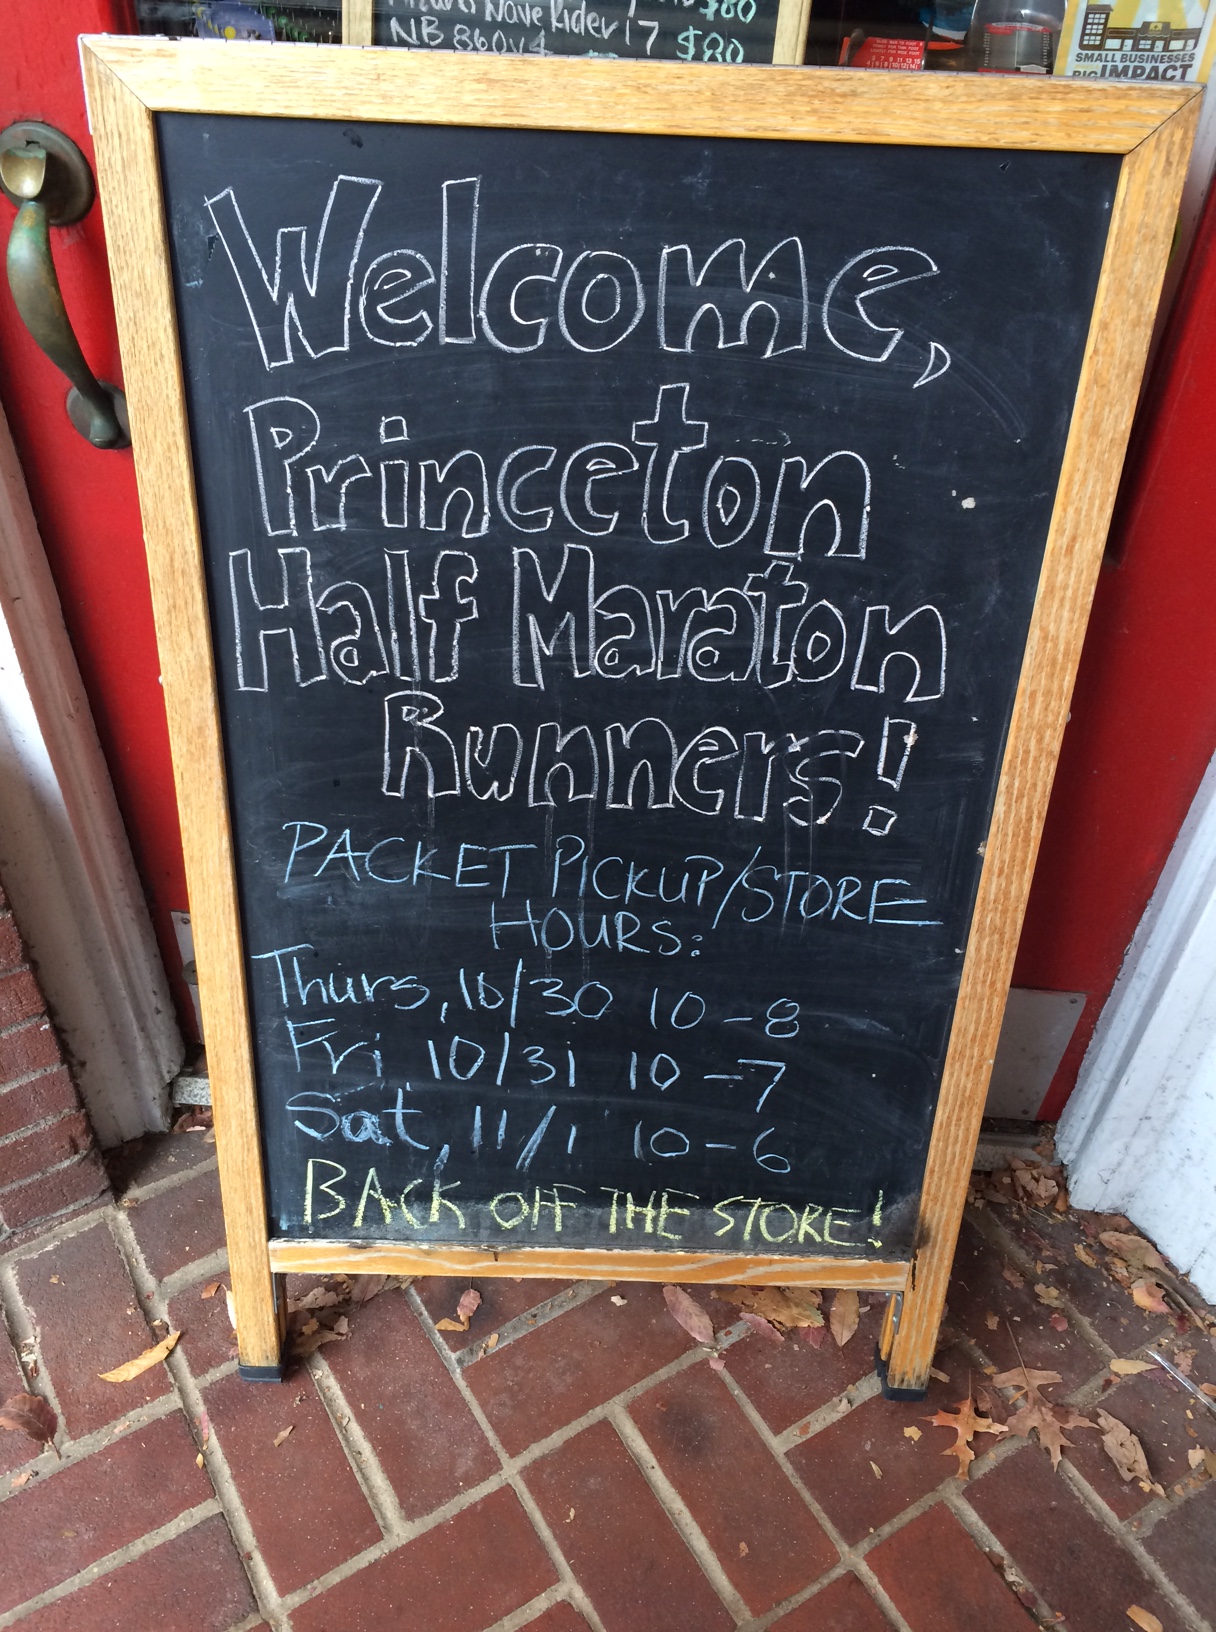 Wave Rider 17 $80
NB 860v4 $80
SMALL BUSINESSES
BIG IMPACT
Welcome,
Princeton
Half Maraton
Runners!
PACKET PICKUP/STORE
HOURS:
Thurs, 10/30 10-8
Fri, 10/31 10-7
Sat, 11/1 10-6
BACK OFF THE STORE!